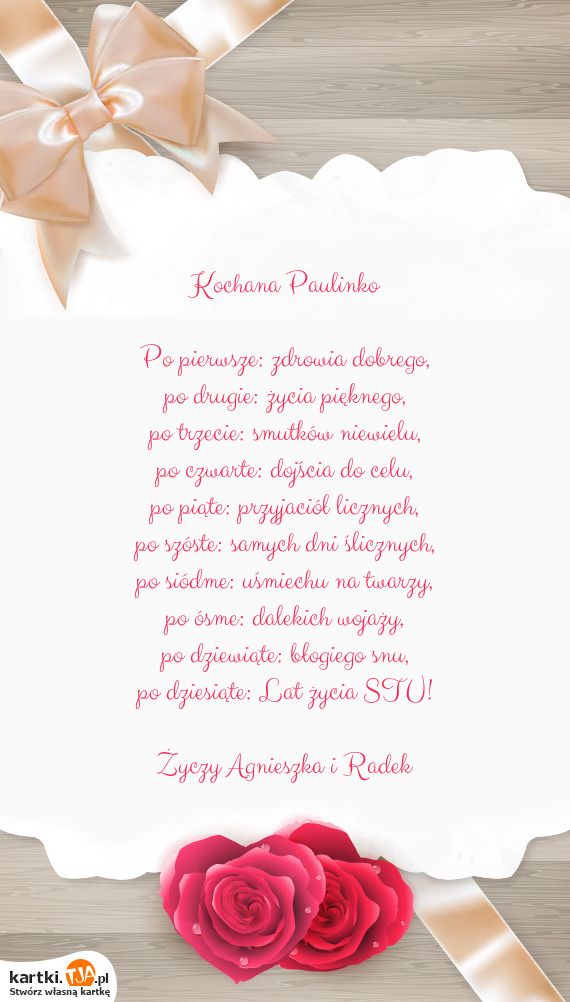 Kochana Paulinko
Po pierwsze: zdrowia dobrego,
po drugie: życia pięknego,
po trzecie: smutków niewielu,
po czwarte: dojścia do celu,
po piąte: przyjaciół licznych,
po szóste: samych dni ślicznych,
po siódme: uśmiechu na twarzy,
po ósme: dalekich wojaży,
po dziewiąte: błogiego snu,
po dziesiąte: Lat życia STU!
Życzy Agnieszka i Radek
kartki.TJA.pl
Stwórz własną kartkę